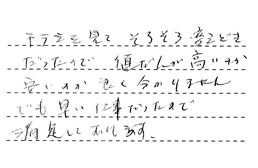 チラシを見て そろそろ 替えどき
だったので 値だんが 高いのか
安いのか 良く分かりません
でも 早い仕事だったので
満足しております。